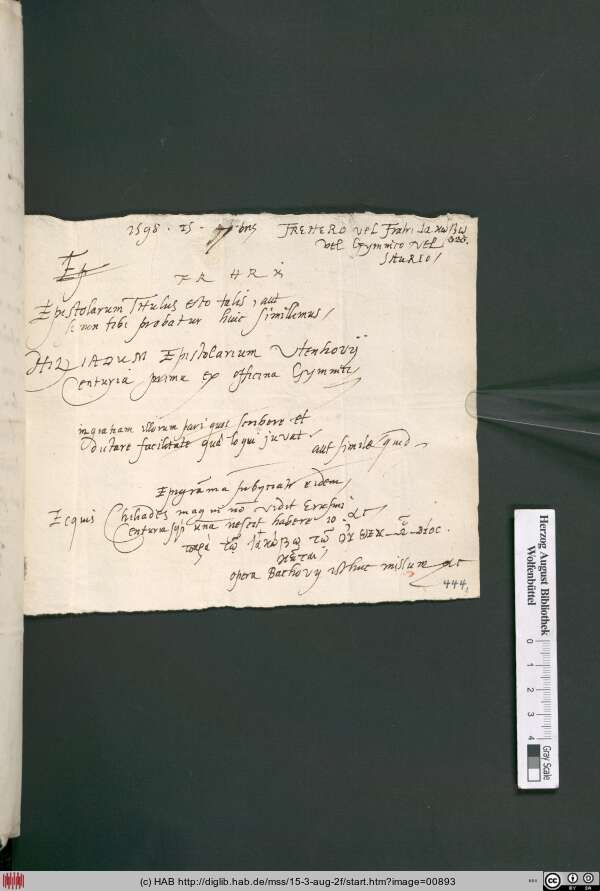 1598. 15. 7bris FREHERO vel Fratri Ιακωβω
vel Gymnico vel
SAURIO/
Ep
Epistolarum Titulus esto talis, aut
si non tibi probatur huic simillimus/
CHILIADUM Epistolarum Utenhovij
Centuria prima ex officina Gymnici
in gratiam illorum pari quos scribere et
Dictare facilitate qua loqui juvat
aut simile quid
Epigrama subijciatr eidem/
Ecquis Chiliades magni nō vidit Erasmi
Centuriasqz una nescit habere 10 &c/
παρὰ τῷ Ιακώβῳ τῷ
opera Bachovij isthuc missum &c
444.
Herzog August Bibliothek
Wolfenbüttel
0 1 2 3 4
Gray Scale
(c) HAB http://diglib.hab.de/mss/15-3-aug-2f/start.htm?image=00893
CC BY SA